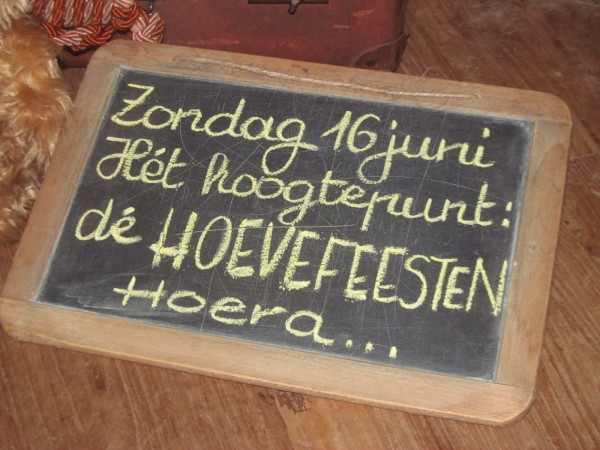 Zondag 16 juni
Hét hoogtepunt:
dé HOEVEFEESTEN
Hoera...